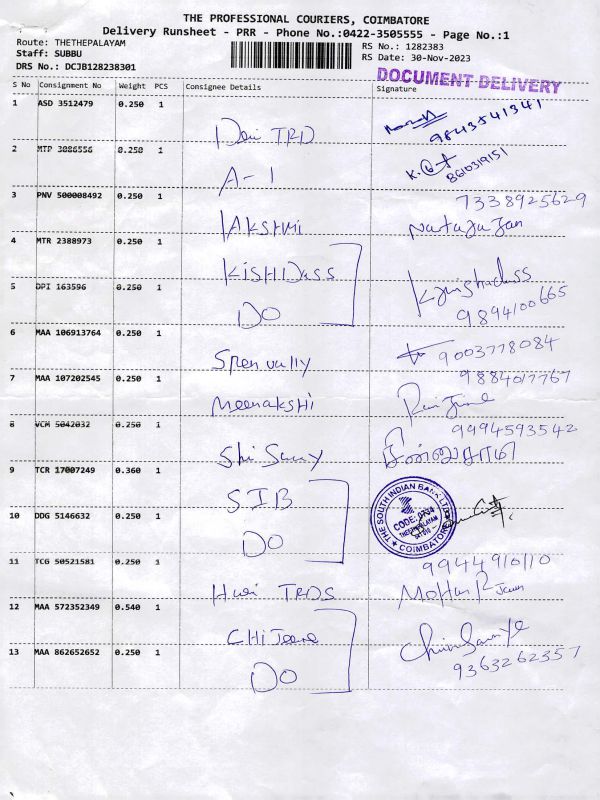 THE PROFESSIONAL COURIERS, COIMBATORE
Delivery Runsheet - PRR - Phone No.:0422-3505555 - Page No.:1
Route: THETHEPALAYAM
Staff: SUBBU
DRS No.: DCJB128238301
RS No.: 1282383
RS Date: 30-Nov-2023
DOCUMENT DELIVERY
S No Consignment No Weight PCS Consignee Details Signature
1 ASD 3512479 0.250 1
Devi TRD 9843541341
2 MTP 3086556 0.250 1
A-1 8610319151
3 PNV 500008492 0.250 1 7338925629
LAKSHMI Nataja Jan
4 MTR 2388973 0.250 1
KISHDASS Krishadass
5 DPI 163596 0.250 1 9894100665
DO
6 MAA 106913764 0.250 1 9003778084
Spen vally
7 MAA 107202545 0.250 1 9884017767
Meenakshi
8 VCM 5042032 0.250 1 9994593542
Shi Sumy சின்னுசாமி
9 TCR 17007249 0.360 1
SIB
THE SOUTH INDIAN BANK LTD
CODE: 0734
THEETHIPALAYAM
COIMBATORE
10 DDG 5146632 0.250 1
DO
11 TCG 50521581 0.250 1 9944910110
Hari TRDS Mohan R
12 MAA 572352349 0.540 1
CHITeene
13 MAA 862652652 0.250 1 9363262357
DO